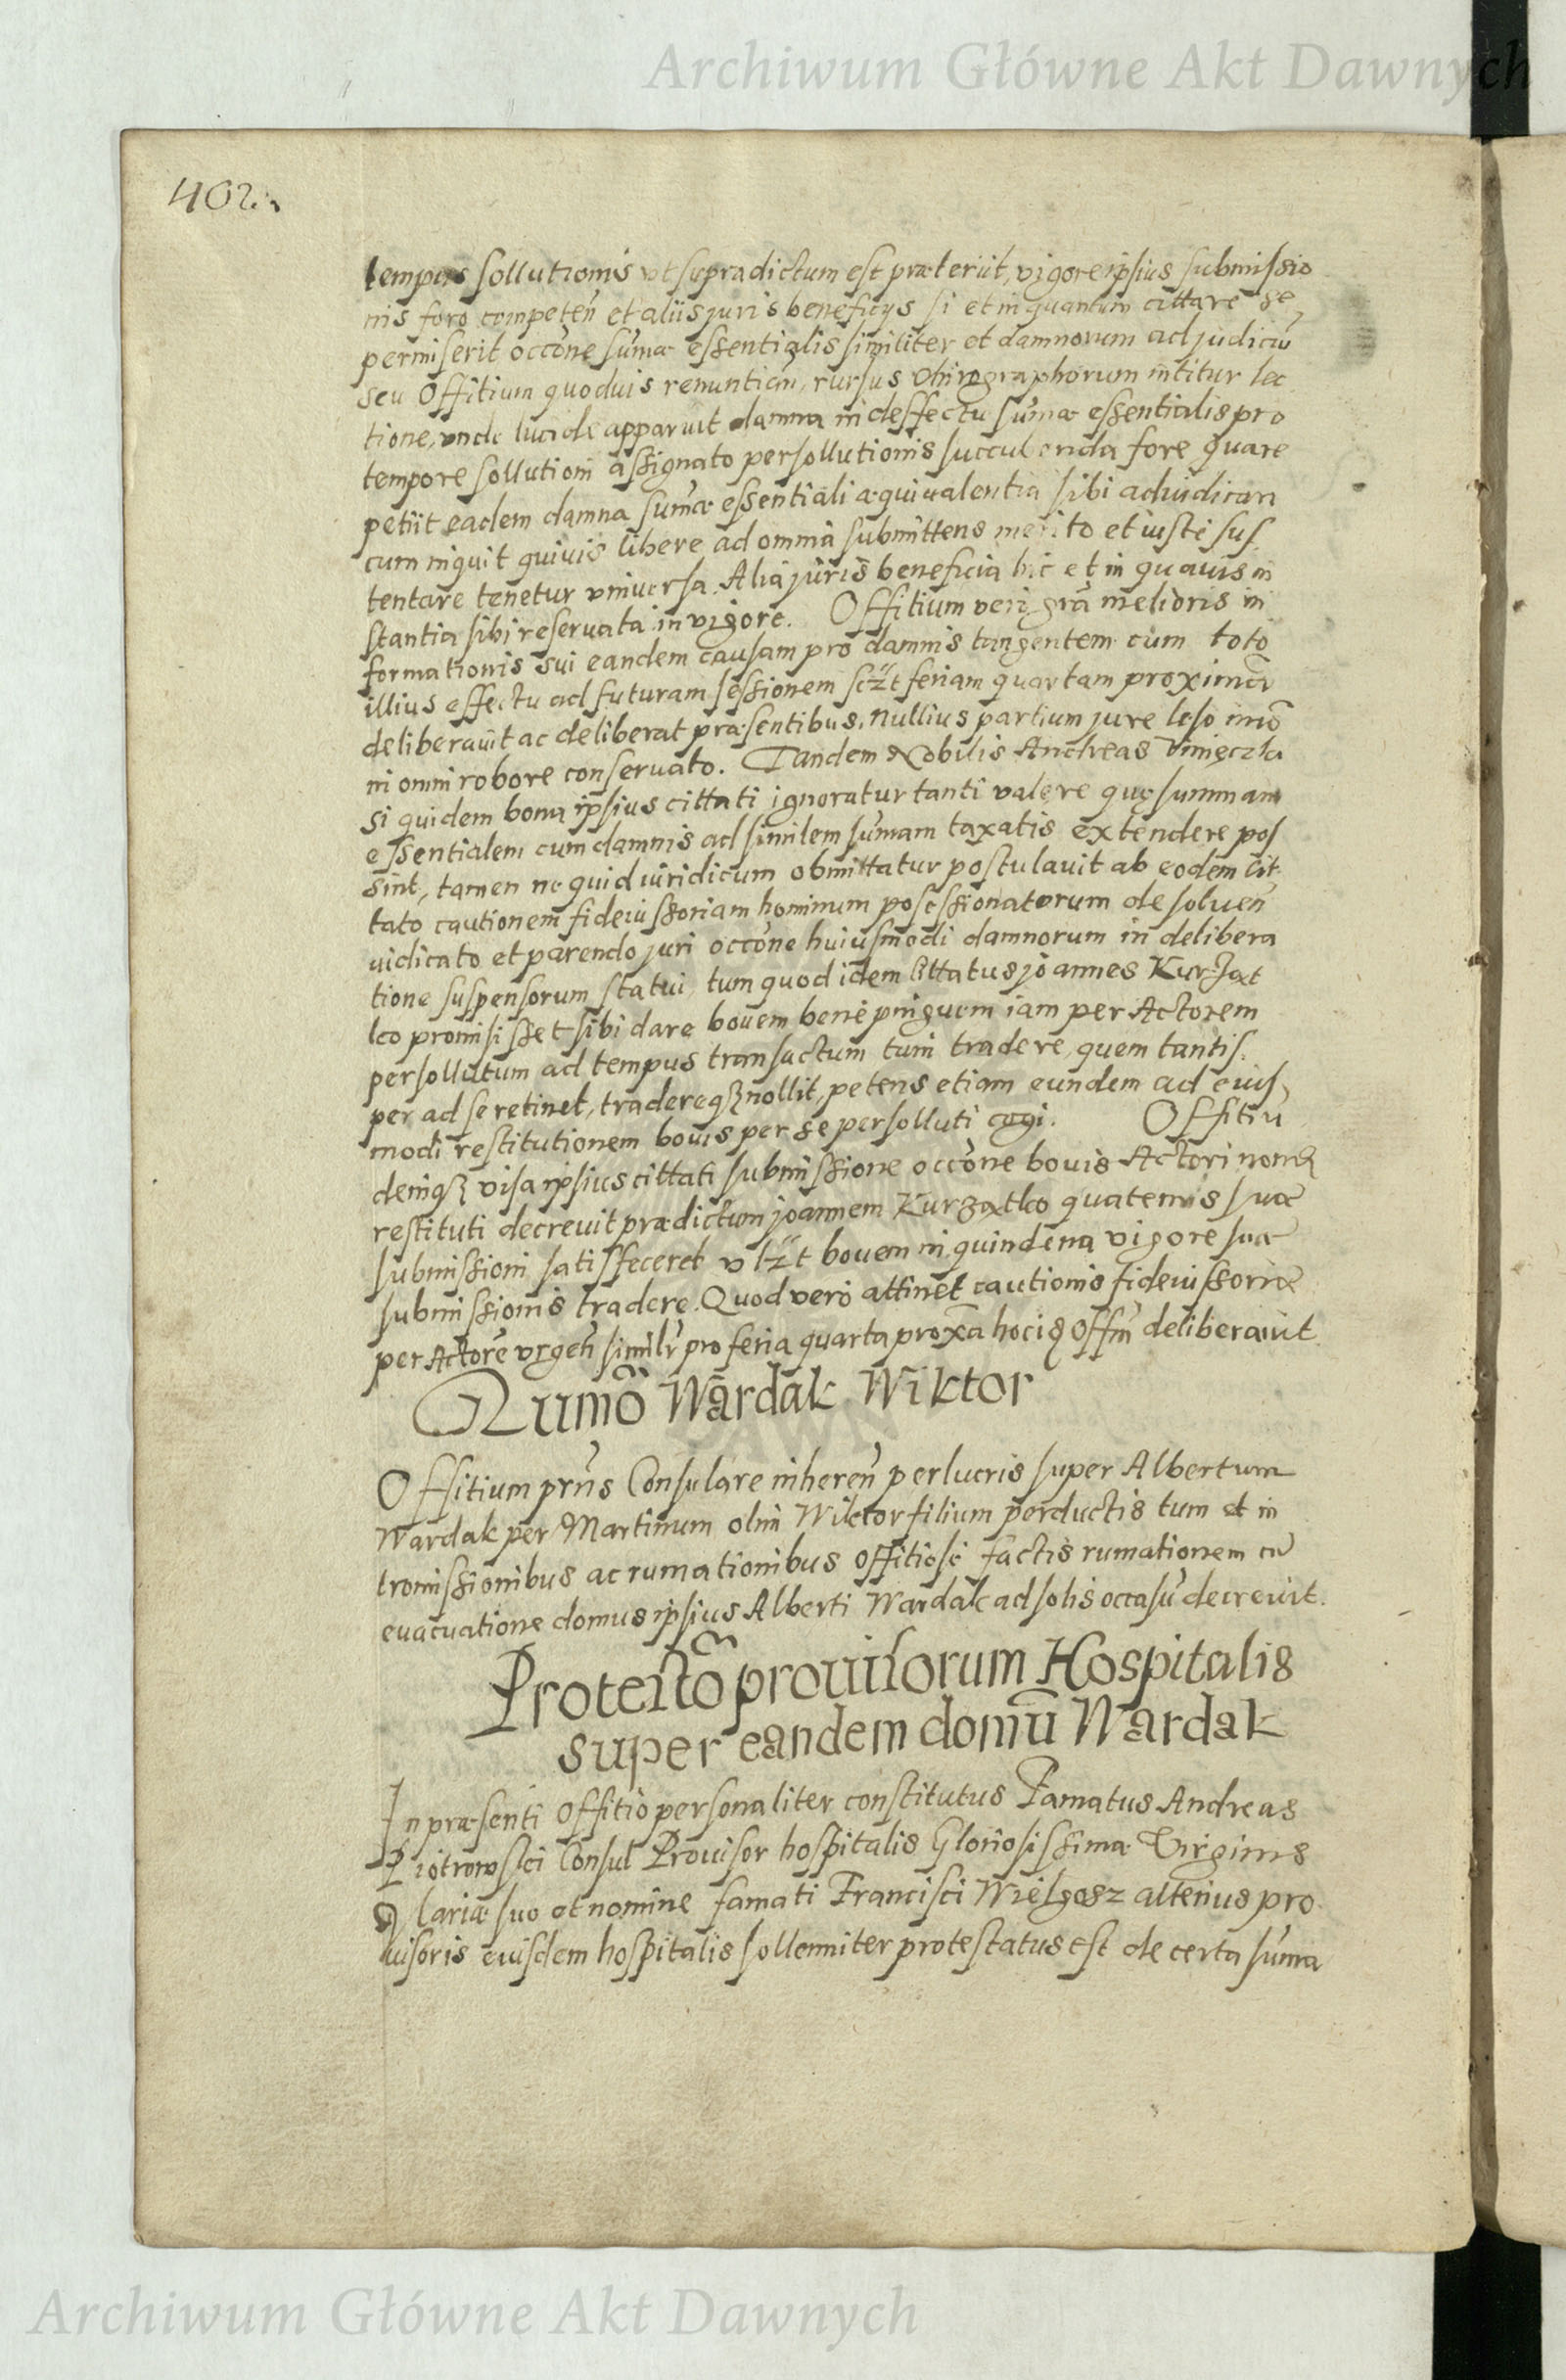 Archiwum Główne Akt Dawnych
402.
tempus sollutionis vt supradictum est præteriit, vigore ipsius submissio
nis foro competeñ et aliis juris beneficijs si et inquantum cittare se
permiserit occõne sum̃æ essentialis similiter et damnorum ad judiciũ
seu Offitium quoduis renuntiañ, rursus Chirographorum intitur lec
tione, vnde lucide apparuit damna in deffectu sum̃æ essentialis pro
tempore sollutioni assignato persollutionis succubenda fore quare
petiit eadem damna sum̃æ essentiali æquiualentia sibi adiudicari
cum inquit quiuis libere ad omnia submittens merito et iuste sus
tentare tenetur vniuersa. Alia juris beneficia hic et in quauis in
stantia sibi reseruata in vigore. Offitium veri grã melioris in
formationis sui eandem causam pro damnis tangentem cum toto
illius effectu ad futuram sessionem sczt feriam quartam proximã
deliberauit ac deliberat præsentibus. Nullius partium jure leso imõ
in omni robore conseruato. Tandem Nobilis Andreas
si quidem bona ipsius cittati ignoratur tanti valere quę summam
essentialem cum damnis ad similem sum̃am taxatis extendere pos
sint, tamen ne quid iuridicum obmittatur postulauit ab eodem Cit
tato cautionem fideiussoriam hominum possessionatorum de solueñ
iudicato et parendo juri occõne huiusmodi damnorum in delibera
tione suspensorum statui, tum quod idem Cittatus joannes Kurząt
ko promisisset sibi dare bouem bene pinguem iam per Actorem
persollutum ad tempus transactum tum tradere, quem tantis
per ad se retinet, tradereqꝫ nollit, petens etiam eundem ad eius
modi restitutionem bouis per se persolluti cogi. Offitiũ
deniqꝫ visa ipsius cittati submissione occõne bouis Actori nondũ
restituti decreuit prædictum joannem Kurzątko quatenus suæ
submissioni satisfeceret vlzt bouem in quindena vigore suæ
submissionis tradere. Quod vero attinet cautionis fideiussoriæ
per Actorẽ vrgeñ similr̃ pro feria quarta proxã hoc Offm̃ deliberauit
Rumõ Wardak Wiktor
Offitium prñs Consulare inhereñ perlucris super Albertum
Wardak per Martinum olim Wiktor filium perductis tum et in
tromissionibus ac rumationibus offitiose factis rumationem cũ
euacuatione domus ipsius Alberti Wardak ad solis occasũ decreuit.
Protestõ prouisorum Hospitalis
super eandem domũ Wardak
In præsenti Offitio personaliter constitutus Famatus Andreas
Piotrowski Consul Prouisor hospitalis Gloriosissimæ Virginis
Mariæ suo et nomine famati Francisci Wielgosz alterius pro
uisoris eiusdem hospitalis sollenniter protestatus est de certa sum̃a
Archiwum Główne Akt Dawnych